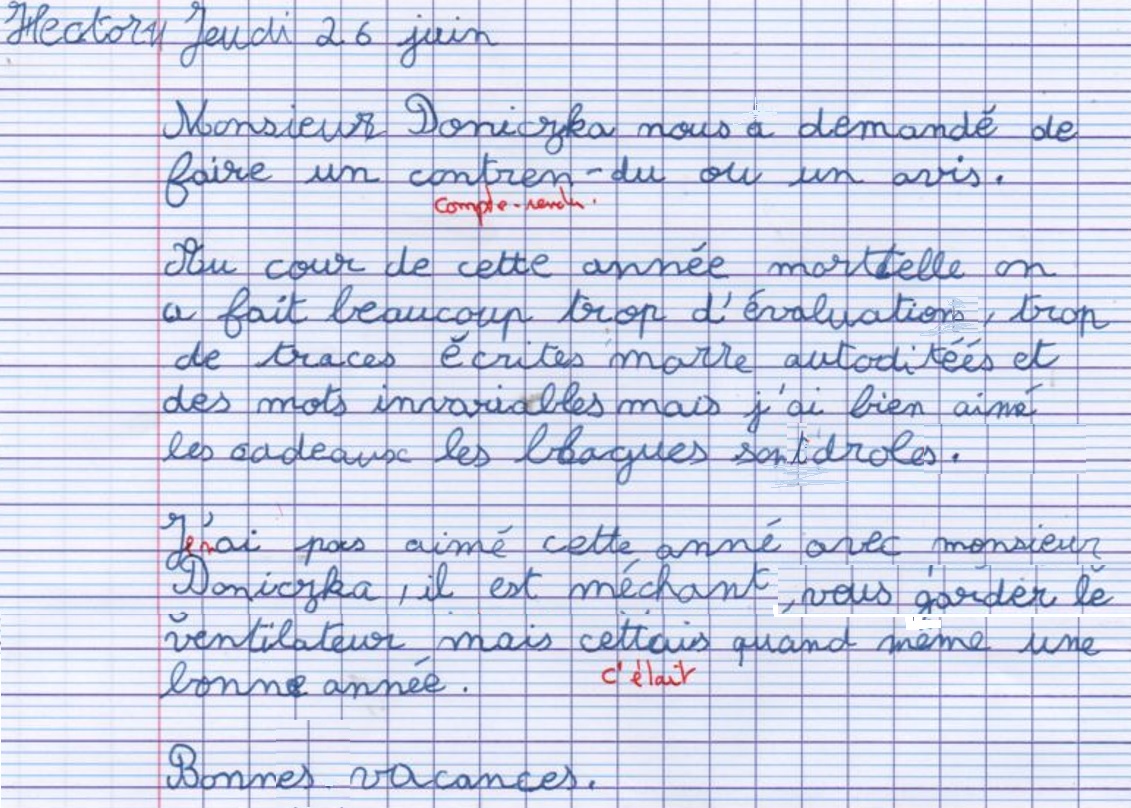 Hectory Jeudi 26 juin
Monsieur Doniczka nous a demandé de
faire un contren-du ou un avis.
compte-rendu.
Au cour de cette année morttelle on
a fait beaucoup trop d'évaluation, trop
de traces écrites marre autoditéés et
des mots invariables mais j'ai bien aimé
les cadeaux les blagues sont droles.
J'ai pas aimé cette anné avec monsieur
en
Doniczka, il est méchant, vous garder le
ventilateur mais cettais quand même une
c'était
bonne année.
Bonnes vacances.